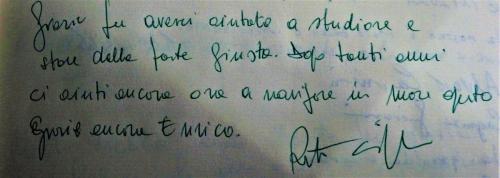 Grazie per averci aiutato a studiare e
stare dalla parte giusta. Dopo tanti anni
ci aiuti ancora ora a navigare in mare aperto
Grazie ancora Enrico.